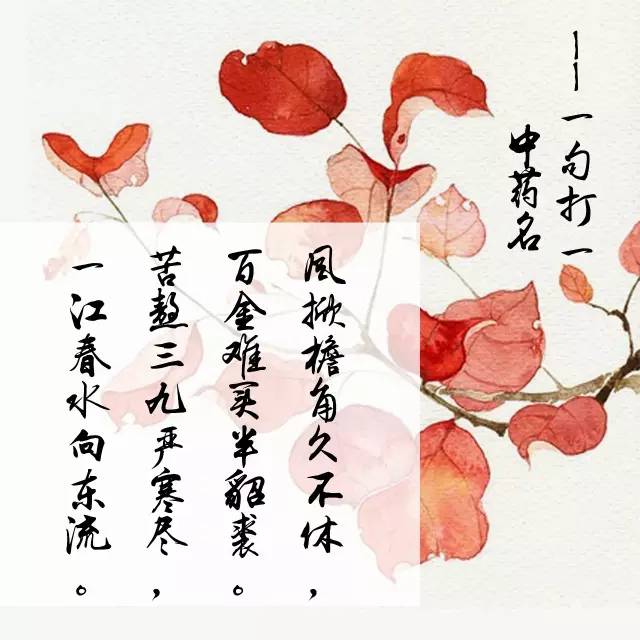 ——一句打一
中药名
风掀檐角久不休，
百金难买半貂裘。
苦熬三九严寒尽，
一江春水向东流。